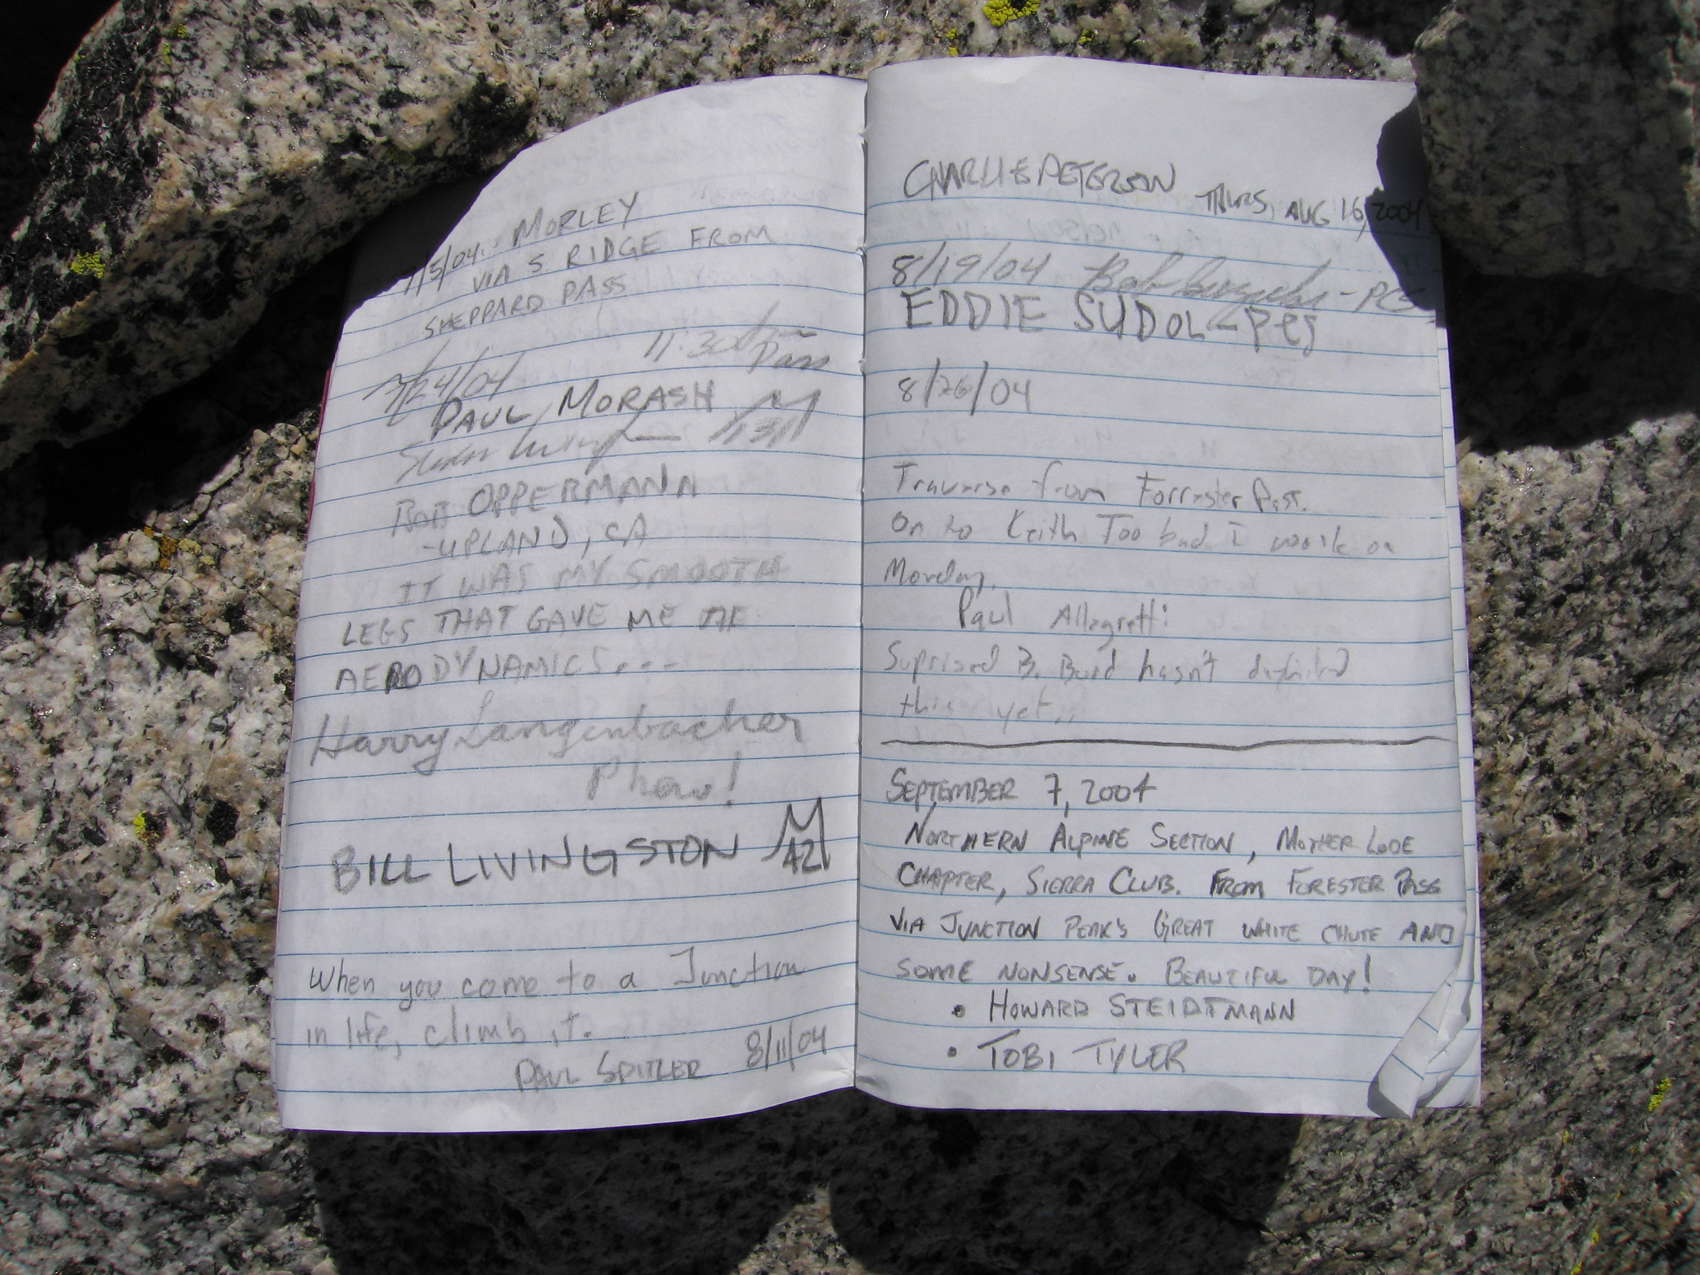 7/5/04. MORLEY
VIA S RIDGE FROM
SHEPPARD PASS
7/24/04 11:30
PAUL MORASH
BOB OPPERMANN
-UPLAND, CA
IT WAS MY SMOOTH
LEGS THAT GAVE ME THE
AERODYNAMICS...
Harry Langenbacher
Phew!
BILL LIVINGSTON
When you come to a Junction
in life, climb it.
PAUL SPITLER 8/11/04
CHARLIE PETERSON THURS, AUG 16, 2004
8/19/04 Bob - PCS
EDDIE SUDOL - PCS
8/26/04
Traverse from Forrester Pass.
On to Keith Too bad I work on
Monday.
Paul Allegretti
Suprised B. Burd hasn't
this yet..
SEPTEMBER 7, 2004
NORTHERN ALPINE SECTION, MOTHER LODE
CHAPTER, SIERRA CLUB. FROM FORESTER PASS
VIA JUNCTION PEAK'S GREAT WHITE CHUTE AND
SOME NONSENSE. BEAUTIFUL DAY!
• HOWARD STEIDTMANN
• TOBI TYLER